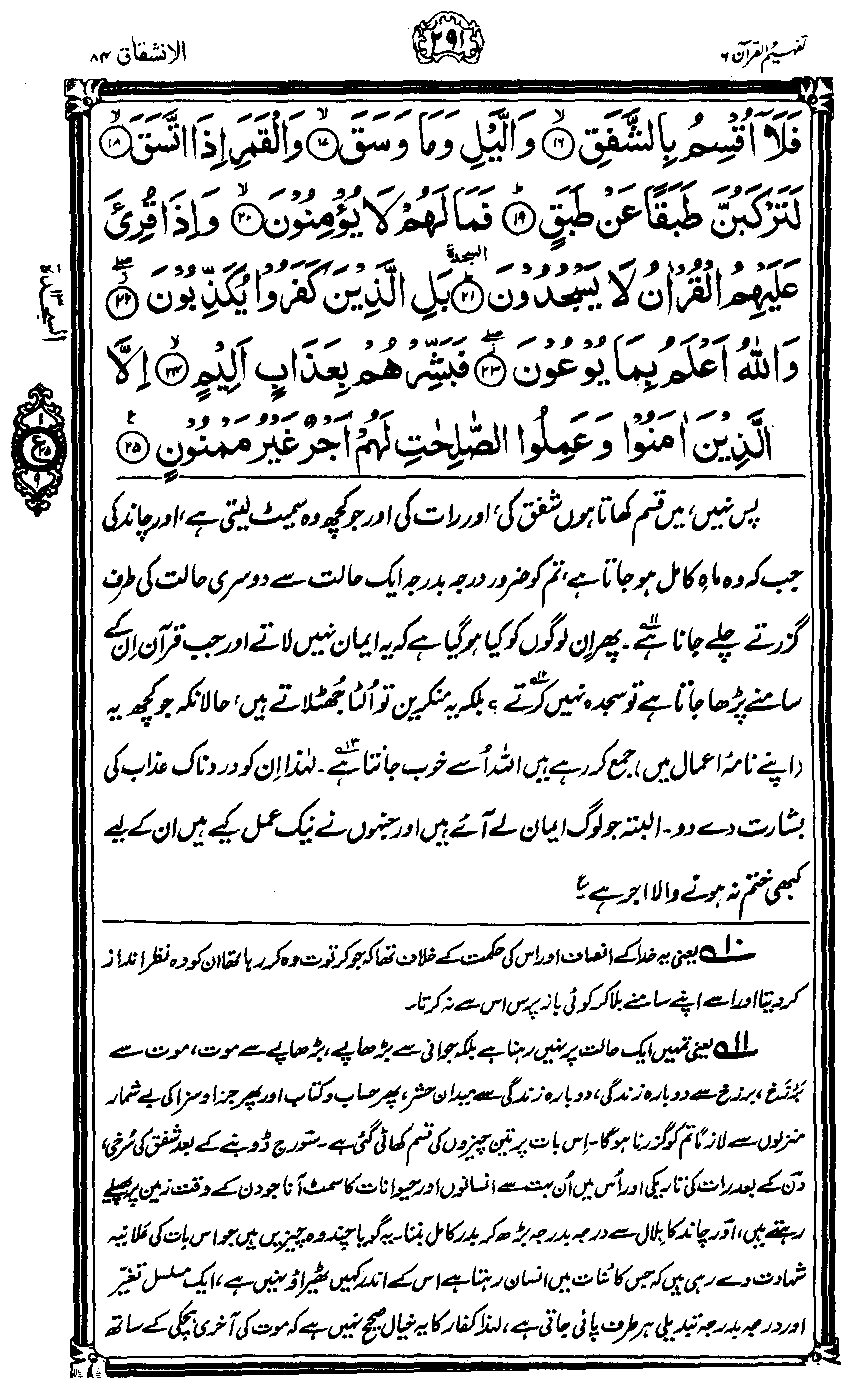 تفہیم القرآن ۶
۲۹۱
الانشقاق ۸۴
فَلَاۤ اُقْسِمُ بِالشَّفَقِ ﴿۱۶﴾ وَالَّيْلِ وَمَا وَسَقَ ﴿۱۷﴾ وَالْقَمَرِ اِذَا اتَّسَقَ ﴿۱۸﴾
لَتَرْكَبُنَّ طَبَقًا عَنْ طَبَقٍ ﴿۱۹﴾ فَمَا لَهُمْ لَا يُؤْمِنُوْنَ ﴿۲۰﴾ وَاِذَا قُرِئَ
عَلَيْهِمُ الْقُرْاٰنُ لَا يَسْجُدُوْنَ ﴿۲۱﴾ السجدۃ بَلِ الَّذِيْنَ كَفَرُوْا يُكَذِّبُوْنَ ﴿۲۲﴾
وَاللّٰهُ اَعْلَمُ بِمَا يُوْعُوْنَ ﴿۲۳﴾ فَبَشِّرْهُمْ بِعَذَابٍ اَلِيْمٍ ﴿۲۴﴾ اِلَّا
الَّذِيْنَ اٰمَنُوْا وَعَمِلُوا الصّٰلِحٰتِ لَهُمْ اَجْرٌ غَيْرُ مَمْنُوْنٍ ﴿۲۵﴾
السجدۃ ۱۳
۱
ع ۲۵
۹
پس نہیں، میں قسم کھاتا ہوں شفق کی، اور رات کی اور جو کچھ وہ سمیٹ لیتی ہے، اور چاند کی
جب کہ وہ ماہِ کامل ہو جاتا ہے، تم کو ضرور درجہ بدرجہ ایک حالت سے دوسری حالت کی طرف
گزرتے چلے جانا ہے۱۱۔ پھر اِن لوگوں کو کیا ہو گیا ہے کہ یہ ایمان نہیں لاتے اور جب قرآن اِن کے
سامنے پڑھا جاتا ہے تو سجدہ نہیں کرتے۱۲؟ بلکہ یہ منکرین تو اُلٹا جھٹلاتے ہیں، حالانکہ جو کچھ یہ
(اپنے نامۂ اعمال میں) جمع کر رہے ہیں اللہ اُسے خوب جانتا ہے۱۳۔ لہٰذا اِن کو دردناک عذاب کی
بشارت دے دو۔ البتہ جو لوگ ایمان لے آئے ہیں اور جنہوں نے نیک عمل کیے ہیں ان کے لیے
کبھی ختم نہ ہونے والا اجر ہے ع
۱۰ یعنی یہ خدا کے انصاف اور اس کی حکمت کے خلاف تھا کہ جو کرتوت وہ کر رہا تھا ان کو وہ نظر انداز
کر دیتا اور اسے اپنے سامنے بلا کر کوئی باز پرس اس سے نہ کرتا۔
۱۱ یعنی تمہیں ایک حالت پر نہیں رہنا ہے بلکہ جوانی سے بڑھاپے، بڑھاپے سے موت، موت سے
بَرْزَخ، برزخ سے دوبارہ زندگی، دوبارہ زندگی سے میدانِ حشر، پھر حساب و کتاب اور پھر جزا و سزا کی بے شمار
منزلوں سے لازماً تم کو گزرنا ہوگا۔ اِس بات پر تین چیزوں کی قسم کھائی گئی ہے۔ سورج ڈوبنے کے بعد شفق کی سُرخی،
دن کے بعد رات کی تاریکی اور اُس میں اُن بہت سے انسانوں اور حیوانات کا سمٹ آنا جو دن کے وقت زمین پر پھیلے
رہتے ہیں، اور چاند کا ہلال سے درجہ بدرجہ بڑھ کر بدر کامل بننا۔ یہ گویا چند وہ چیزیں ہیں جو اس بات کی عَلانیہ
شہادت دے رہی ہیں کہ جس کائنات میں انسان رہتا ہے اس کے اندر کہیں ٹھیراؤ نہیں ہے، ایک مسلسل تغیّر
اور درجہ بدرجہ تبدیلی ہر طرف پائی جاتی ہے، لہٰذا کفار کا یہ خیال صحیح نہیں ہے کہ موت کی آخری ہچکی کے ساتھ